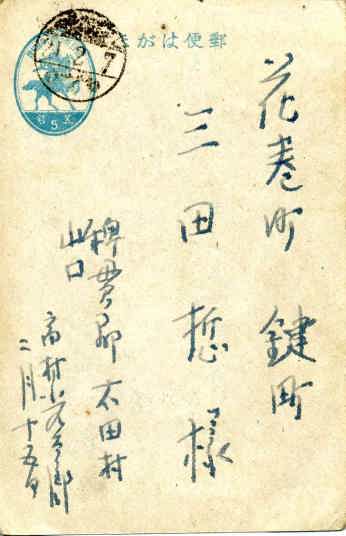 郵便はがき
21 2 7
5
花巻町 鍵町
三田 悊 様
稗貫郡 太田村
山口
高村光太郎
二月十五日